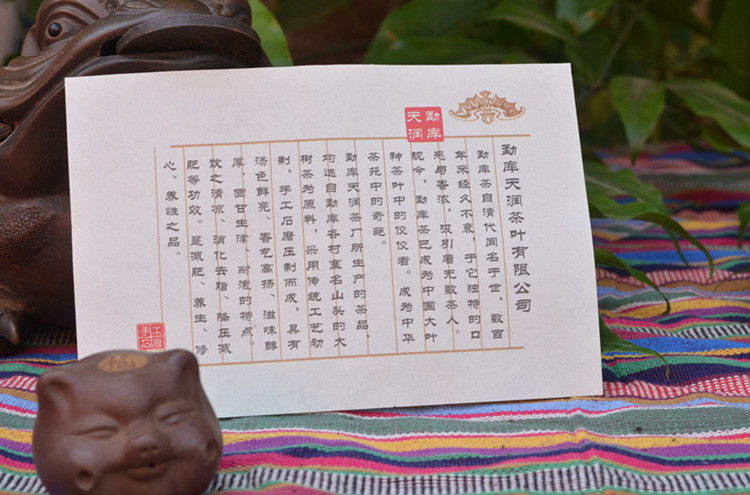 勐库
天润
勐库天润茶叶有限公司
勐库茶自清代闻名于世，数百
年来经久不衰，于它独特的口
感与香浓，吸引着无数茶人。
现今，勐库茶已成为中国大叶
种茶叶中的佼佼者。成为中华
茶苑中的奇葩。
勐库天润茶厂所生产的茶品，
均选自勐库各村寨名山头的大
树茶为原料，采用传统工艺初
制，手工石磨压制而成，具有
汤色鲜亮、香气高扬、滋味醇
厚、回甘生津、耐泡的特点。
饮之清凉、消化去脂、降压减
肥等功效。是减肥、养生、修
心、养性之品。
手工
石磨